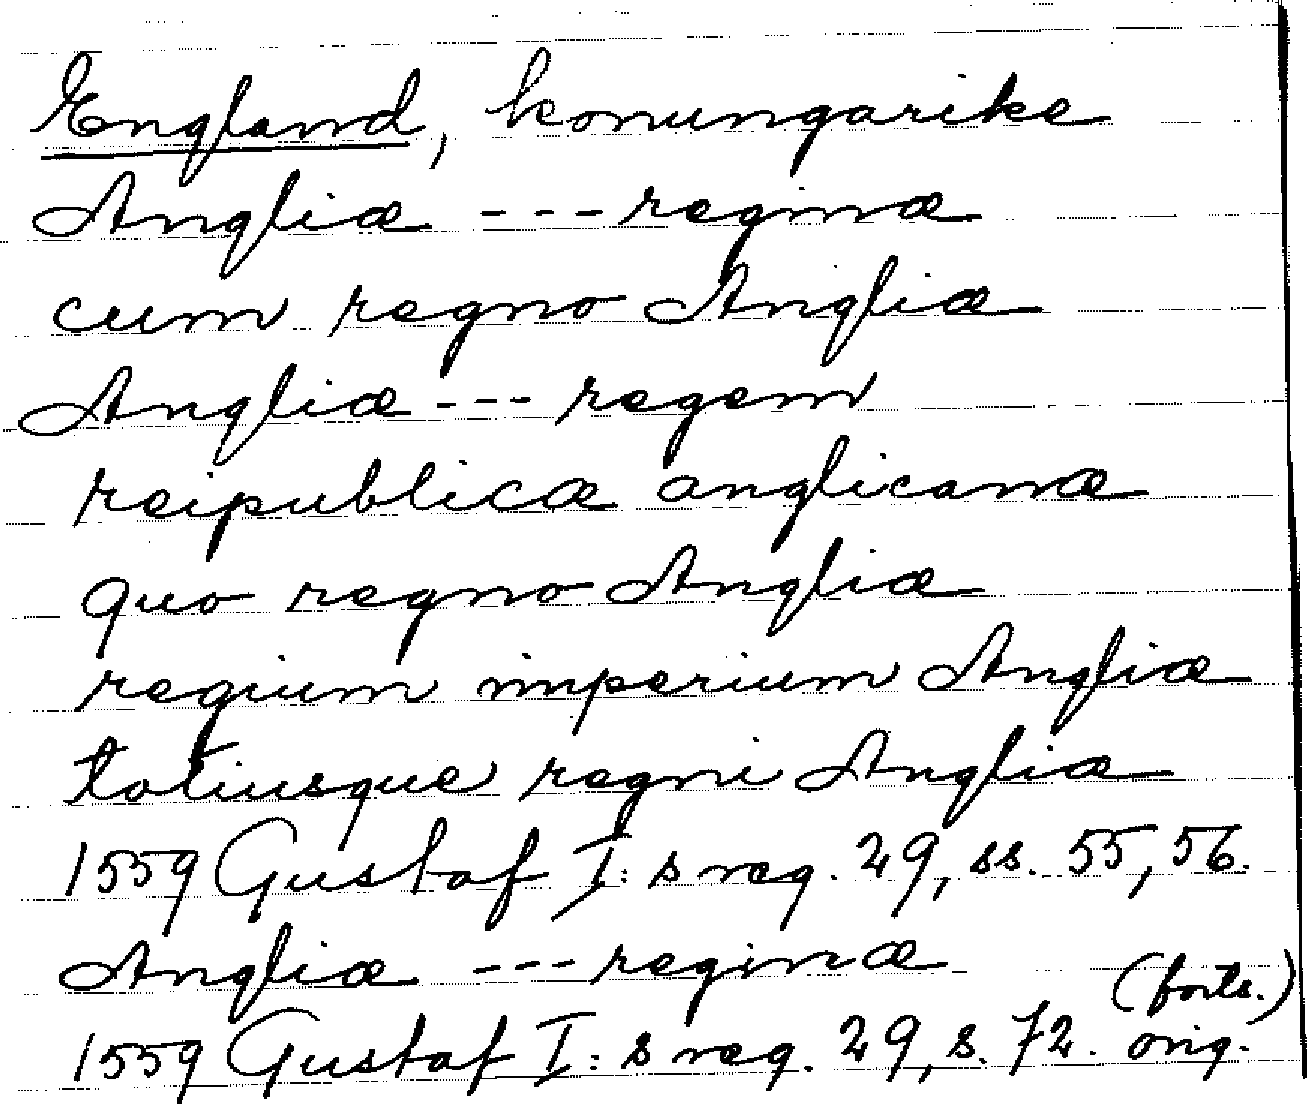 England, konungarike
Angliæ --- reginæ
cum regno Angliæ
Angliæ --- regem
reipublicæ anglicanæ
quo regno Angliæ
regium imperium Angliæ
totiusque regni Angliæ
1559 Gustaf I:s reg. 29, ss. 55, 56.
Angliæ --- reginæ
(forts.)
1559 Gustaf I:s reg. 29, s. 72. orig.